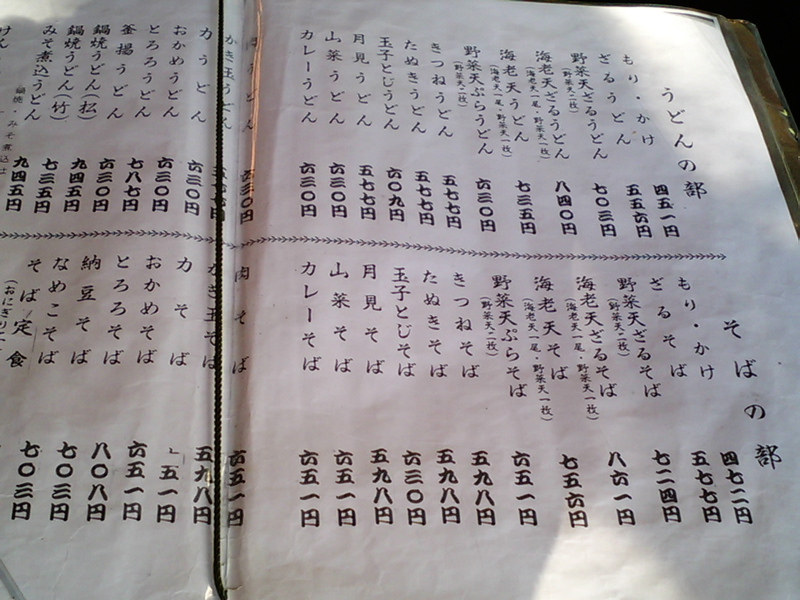 うどんの部
もり・かけ 四五一円
ざるうどん 五五六円
野菜天ざるうどん 七〇三円
(野菜天二枚)
海老天ざるうどん 八四〇円
(海老天一尾・野菜天一枚)
海老天うどん 七三五円
(海老天一尾・野菜天一枚)
野菜天ぷらうどん 六三〇円
(野菜天二枚)
きつねうどん 五七七円
たぬきうどん 五七七円
玉子とじうどん 六〇九円
月見うどん 五七七円
山菜うどん 六三〇円
カレーうどん 六三〇円
肉うどん 六三〇円
かき玉うどん 五七七円
力うどん 六三〇円
おかめうどん 六三〇円
とろろうどん 七八七円
釜揚うどん 六三〇円
鍋焼うどん(松) 九四五円
鍋焼うどん(竹) 七三五円
みそ煮込うどん 九四五円
鍋焼・みそ煮込は
そばの部
もり・かけ 四七二円
ざるそば 五七七円
野菜天ざるそば 七二四円
(野菜天二枚)
海老天ざるそば 八六一円
(海老天一尾・野菜天一枚)
海老天そば 七五六円
(海老天一尾・野菜天一枚)
野菜天ぷらそば 六五一円
(野菜天二枚)
きつねそば 五九八円
たぬきそば 五九八円
玉子とじそば 六三〇円
月見そば 五九八円
山菜そば 六五一円
カレーそば 六五一円
肉そば 六五一円
かき玉そば 五九八円
力そば 五一円
おかめそば 六五一円
とろろそば 八〇八円
納豆そば 七〇三円
なめこそば 七〇三円
そば定食
(おにぎり